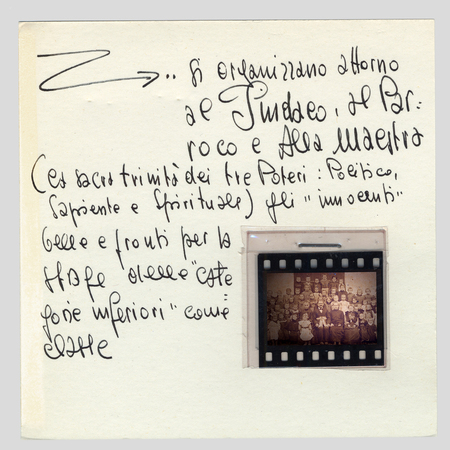 .. si organizzano attorno
al Sindaco, al Par-
roco e alla Maestra
(la sacra trinità dei tre Poteri: Politico,
Sapiente e Spirituale) gli "innocenti"
belle e pronti per la
strage delle "cate
gorie inferiori" come
classe